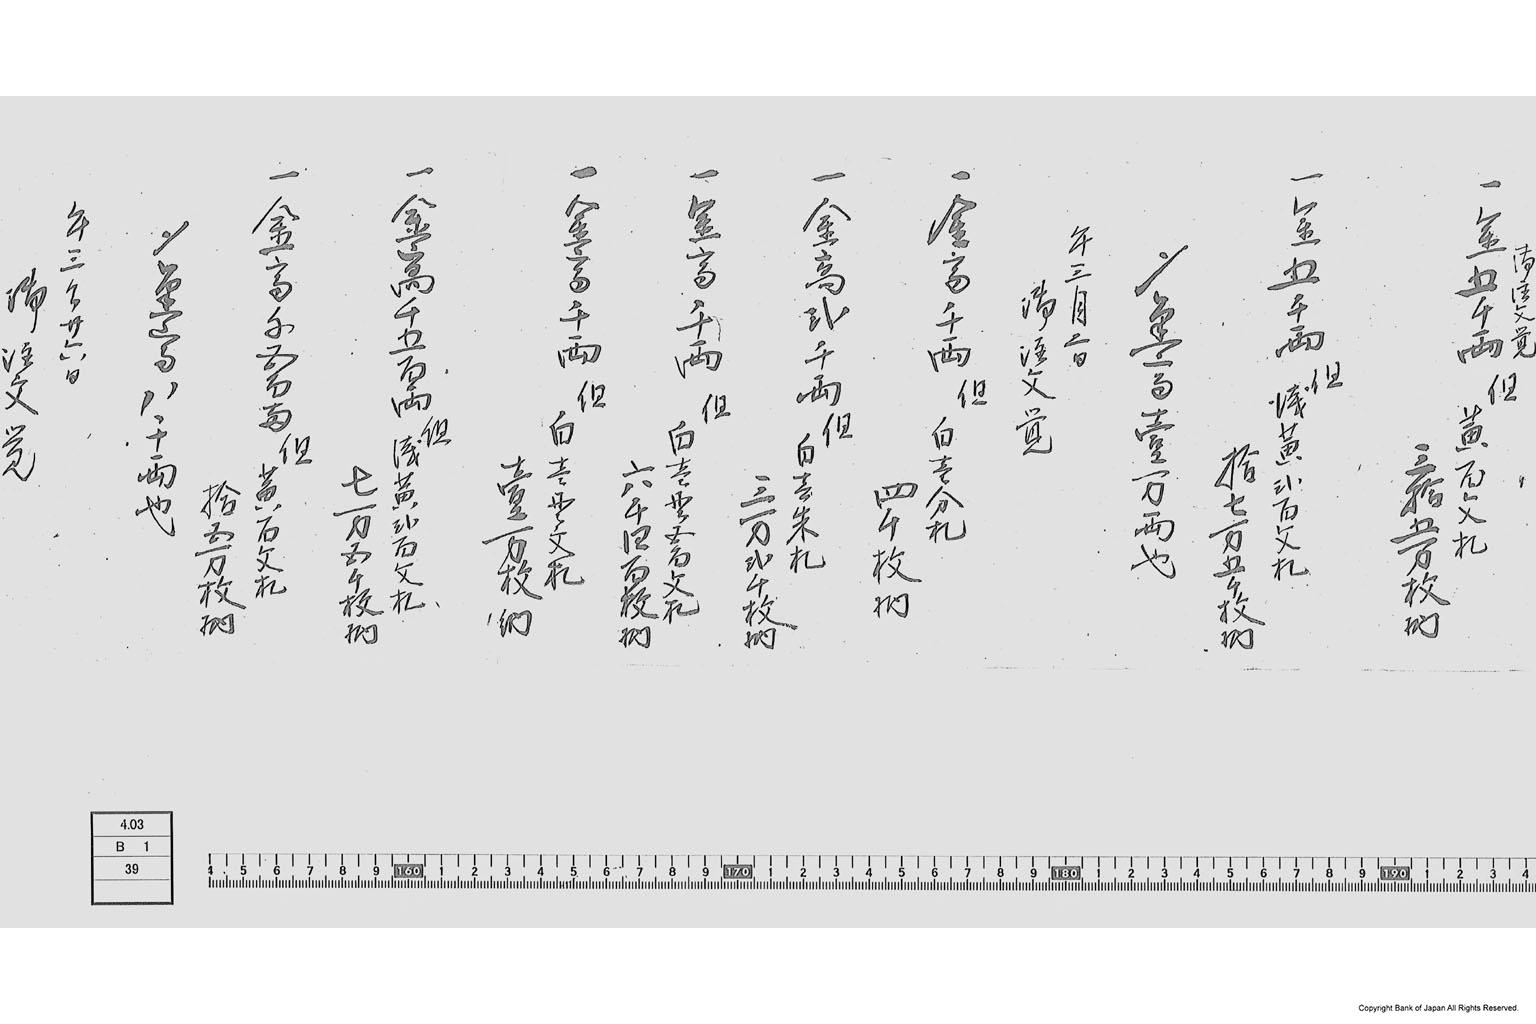 御注文覚
一金五千両 但 黄百文札
三拾五万枚納
一金五千両 但 浅黄弐百文札
拾七万五千枚納
〆金高壹万両也
午三月二日
御注文覚
一金高千両 但 白壱分札
四千枚納
一金高弐千両 但 白壱朱札
三万弐千枚納
一金高千両 但 白壱貫五百文札
六千四百枚納
一金高千両 但 白壱貫文札
壹万枚納
一金高千五百両 但 浅黄弐百文札
七万五千枚納
一金高千五百両 但 黄百文札
拾五万枚納
〆金高八千両也
午三月廿六日
御注文覚
4.03
B 1
39
4 5 6 7 8 9 160 1 2 3 4 5 6 7 8 9 170 1 2 3 4 5 6 7 8 9 180 1 2 3 4 5 6 7 8 9 190 1 2 3 4
Copyright Bank of Japan All Rights Reserved.